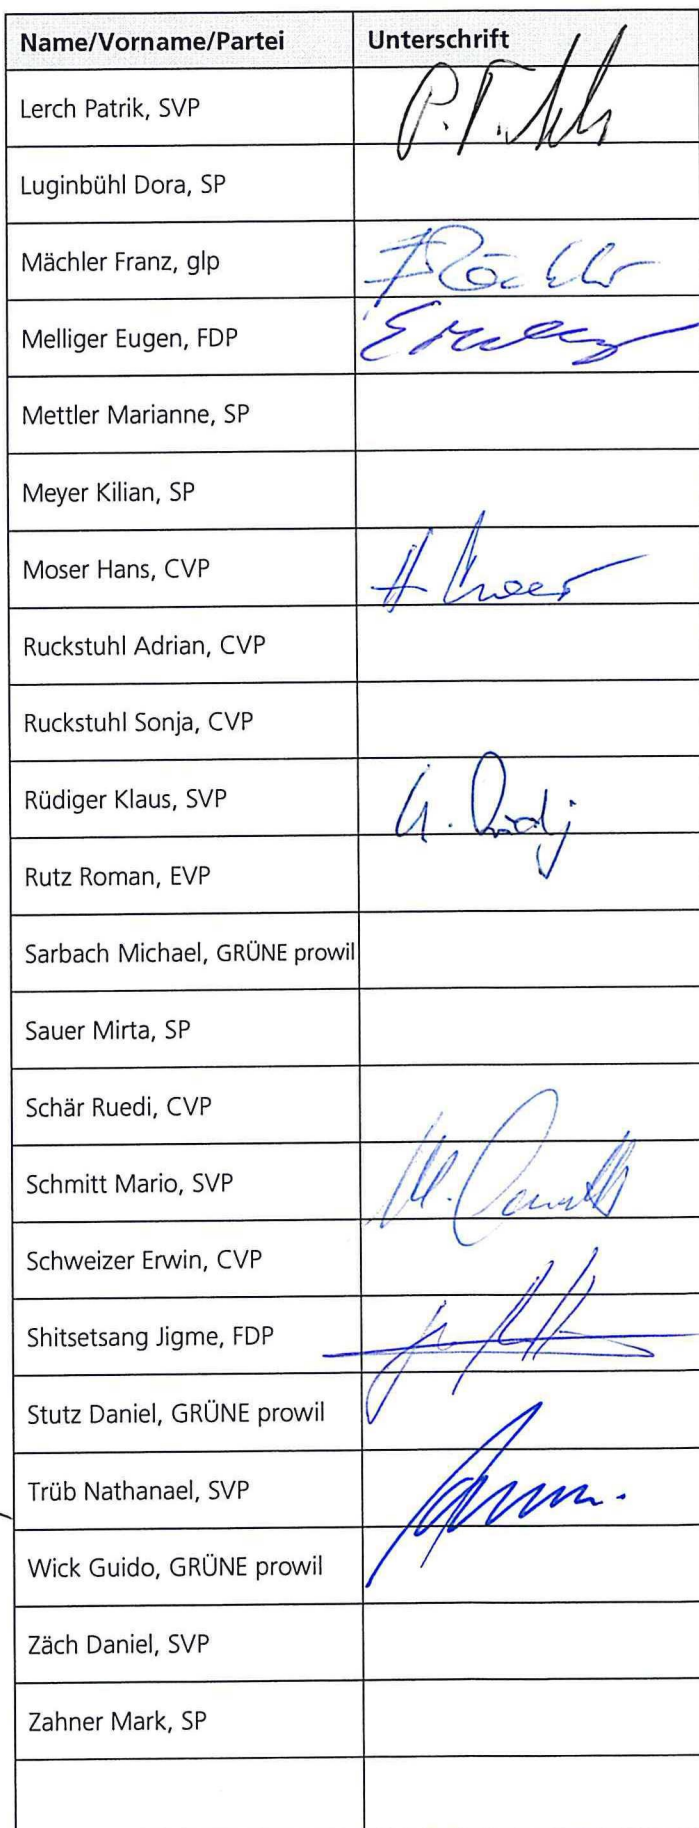 Name/Vorname/Partei Unterschrift
Lerch Patrik, SVP
Luginbühl Dora, SP
Mächler Franz, glp
Melliger Eugen, FDP
Mettler Marianne, SP
Meyer Kilian, SP
Moser Hans, CVP
Ruckstuhl Adrian, CVP
Ruckstuhl Sonja, CVP
Rüdiger Klaus, SVP
Rutz Roman, EVP
Sarbach Michael, GRÜNE prowil
Sauer Mirta, SP
Schär Ruedi, CVP
Schmitt Mario, SVP
Schweizer Erwin, CVP
Shitsetsang Jigme, FDP
Stutz Daniel, GRÜNE prowil
Trüb Nathanael, SVP
Wick Guido, GRÜNE prowil
Zäch Daniel, SVP
Zahner Mark, SP